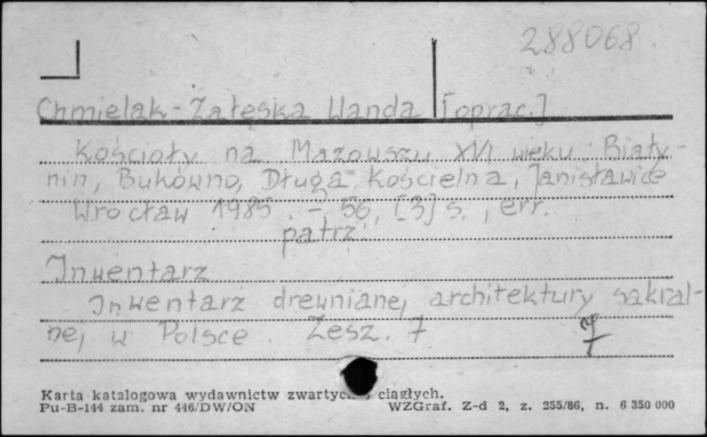 288068
Chmielak-Załęska Wanda [oprac.]
Kościoły na Mazowszu XVI wieku: Biały-
nin, Bukówno, Długa Kościelna, Janisławice
Wrocław 1985. -, 56, [3] s., err.
patrz:
Inwentarz
Inwentarz drewnianej architektury sakral-
nej w Polsce. Zesz. 7
7
Karta katalogowa wydawnictw zwartych ciągłych.
Pu-B-144 zam. nr 446/DW/ON WZGraf. Z-d 2, z. 255/86, n. 6 350 000